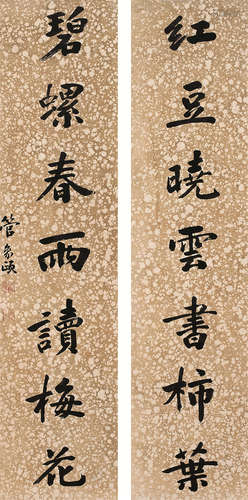 紅豆曉雲書柿葉
碧螺春雨讀梅花
管象頤